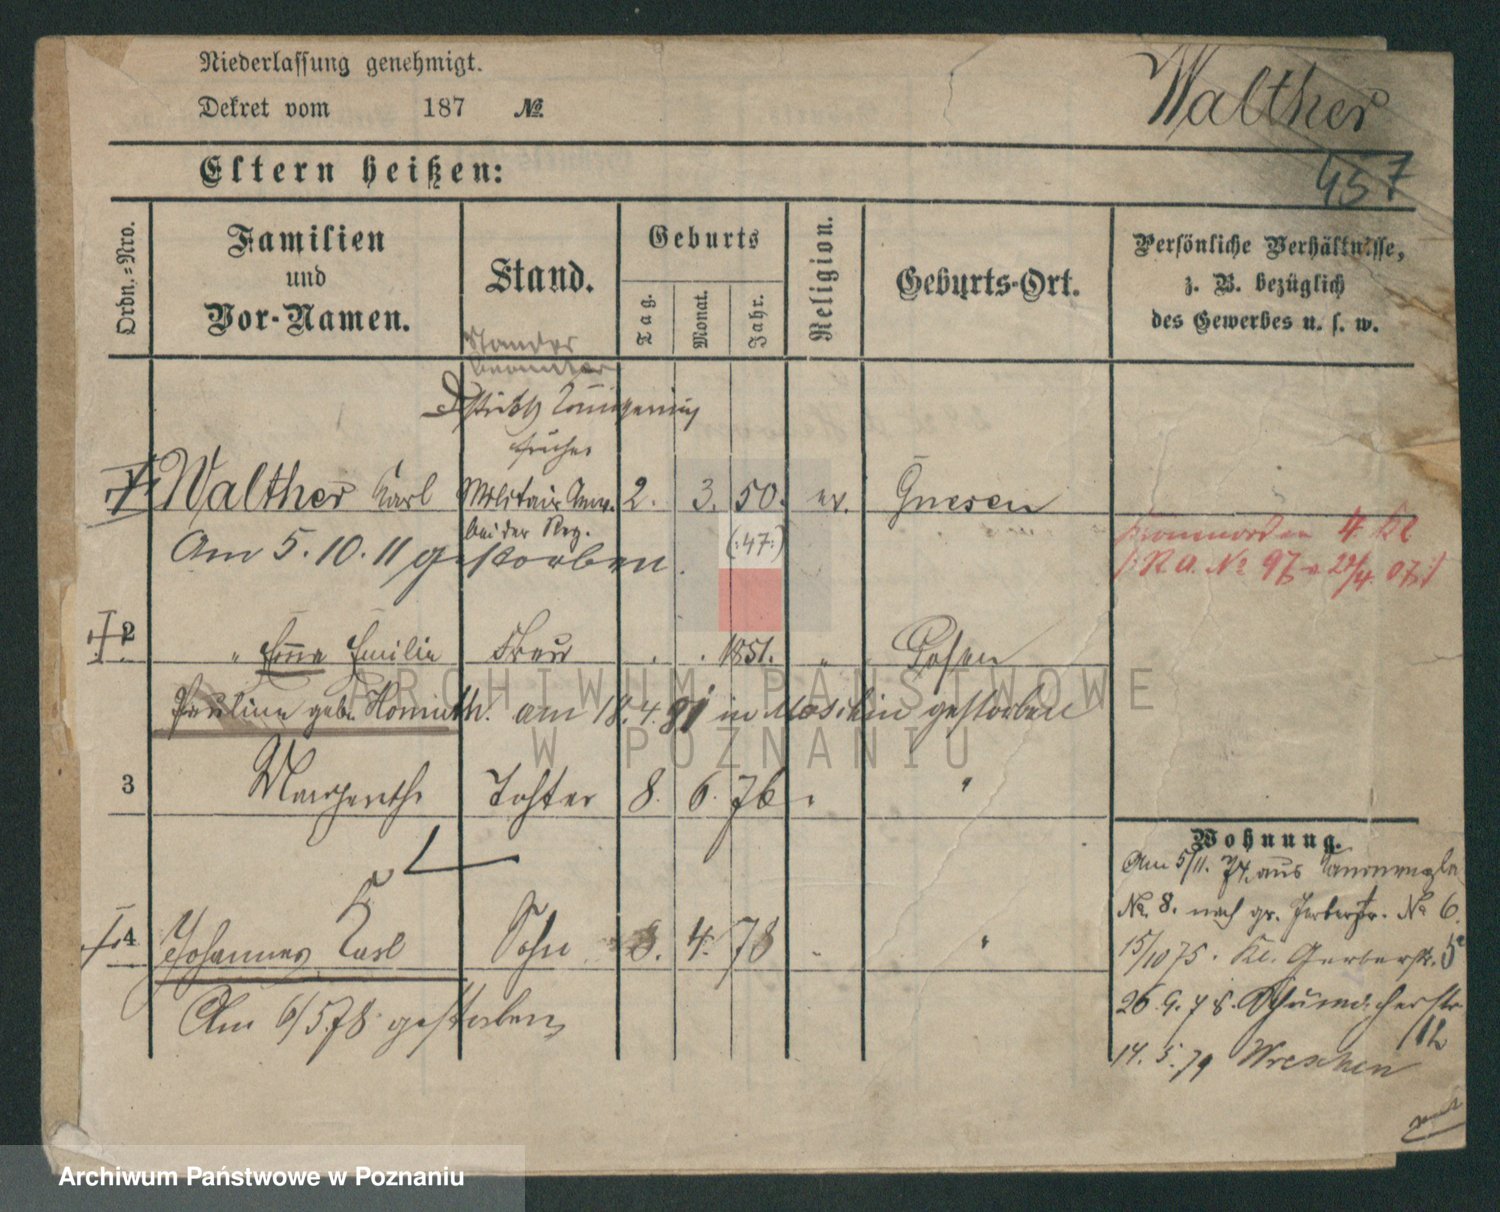 Niederlassung genehmigt.
Dekret vom 187 №
Walther
457
Eltern heißen:
Ordn.=Nro.
Familien
und
Vor-Namen.
Stand.
Geburts
Tag.
Monat.
Jahr.
Religion.
Geburts-Ort.
Persönliche Verhältnisse,
z. B. bezüglich
des Gewerbes u. s. w.
Distrikts
früher
Walther Karl Militair 2. 3. 50. ev. Gnesen
bei der Reg.
(:47:)
Am 5.10.11 gestorben.
4. Kl
2 " Emilie Frau . . 1851. " Posen
Pauline geb. am 18.4.81 in Moschin gestorben
3 Margareth Tochter 8. 6. 76 " "
4 Johannes Karl Sohn 8. 4. 78 " "
Am 6/5.78 gestorben
Wohnung.
Am 5/11. 74. aus
No. 8. nach gr. Gerberstr. No 6.
15/10 75. Kl. Gerberstr. 5
26.9.78. Schumacherstr.
12
14.5.79 Wreschen
ARCHIWUM PAŃSTWOWE
W POZNANIU
Archiwum Państwowe w Poznaniu